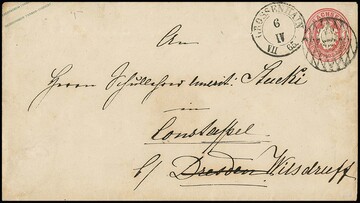 GROSSENHAIN
9
IV
VII 65
An
Herrn Schullehrer emerit: Stucki
in
Constappel
b/ Dresden Wilsdruff